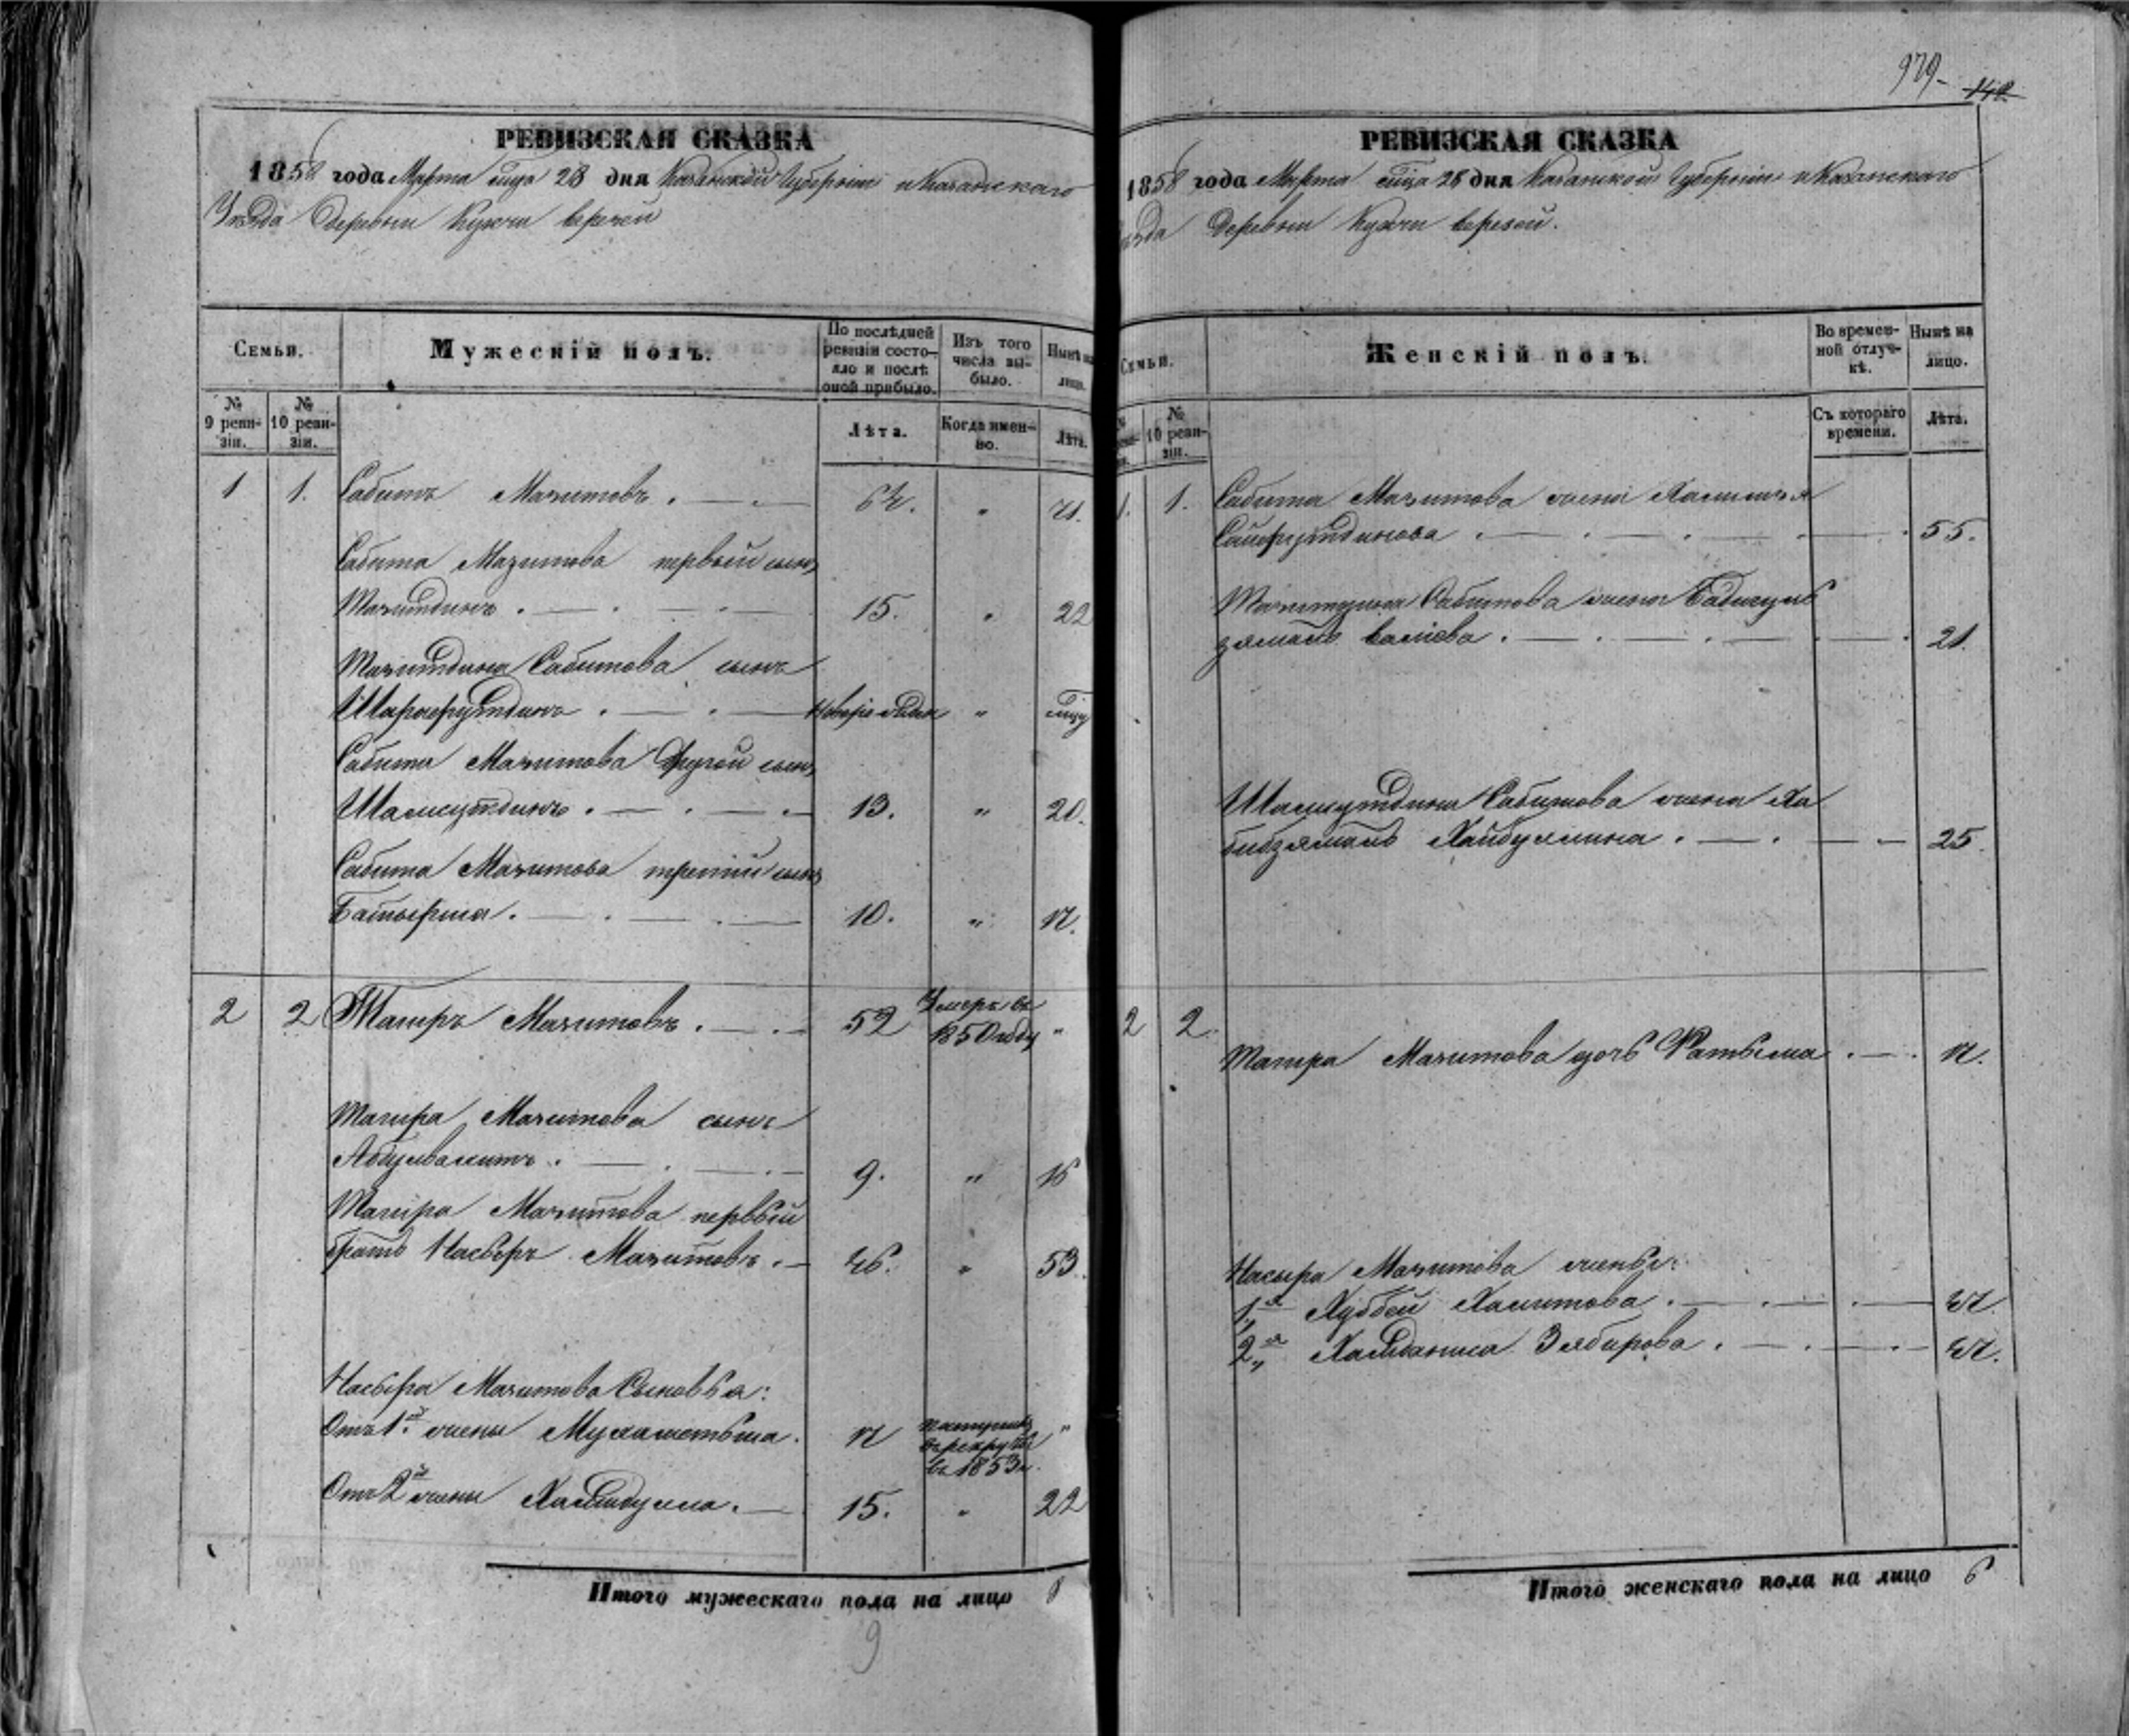 979
РЕВИЗСКАЯ СКАЗКА
1858 года Марта мца 28 дня Казанской Губернiи и Казанскаго
Уѣзда Деревни
Семьи.
Мужескій полъ.
По послѣдней ревизіи состояло и послѣ оной прибыло.
Изъ того числа выбыло.
Нынѣ на лицо.
№ 9 ревизіи.
№ 10 ревизіи.
Лѣта.
Когда именно.
Лѣта.
1 1. Сабитъ Мазитовъ 64. „ 71.
Сабита Мазитова первый сынъ
15. „ 22
Сабитова сынъ
Шарафутдинъ „ мцу
Сабита Мазитова другой сынъ
Шамсутдинъ 13. „ 20.
Сабита Мазитова третiй сынъ
Батырша 10. „ 17.
2 2 Тагиръ Мазитовъ 52 Умеръ въ 1850 году „
Тагира Мазитова сынъ
9. „ 16
Тагира Мазитова первый
братъ Насыръ Мазитовъ 46. „ 53.
Насыра Мазитова сыновья:
Отъ 1й жены Мухаметьша 17 въ рекруты въ 1853 г. „
Отъ 2й жены 15. „ 22
Итого мужескаго пола на лицо 8
9
РЕВИЗСКАЯ СКАЗКА
1858 года Марта мца 28 дня Казанской Губернiи и Казанскаго
Деревни
Семьи.
Женскій полъ.
Во временной отлучкѣ.
Нынѣ на лицо.
10 ревизіи.
Съ котораго времени.
Лѣта.
1. 1. Сабита Мазитова жена
Сайфутдинова 55.
Сабитова жена
Валiева 21.
Шамсутдина Сабитова жена Ха
бибзямалъ Хайбуллина 25.
2 2.
Тагира Мазитова дочь Фатыма 17.
Насыра Мазитова жены:
1я Хамитова 47.
2я Зябирова 47.
Итого женскаго пола на лицо 6